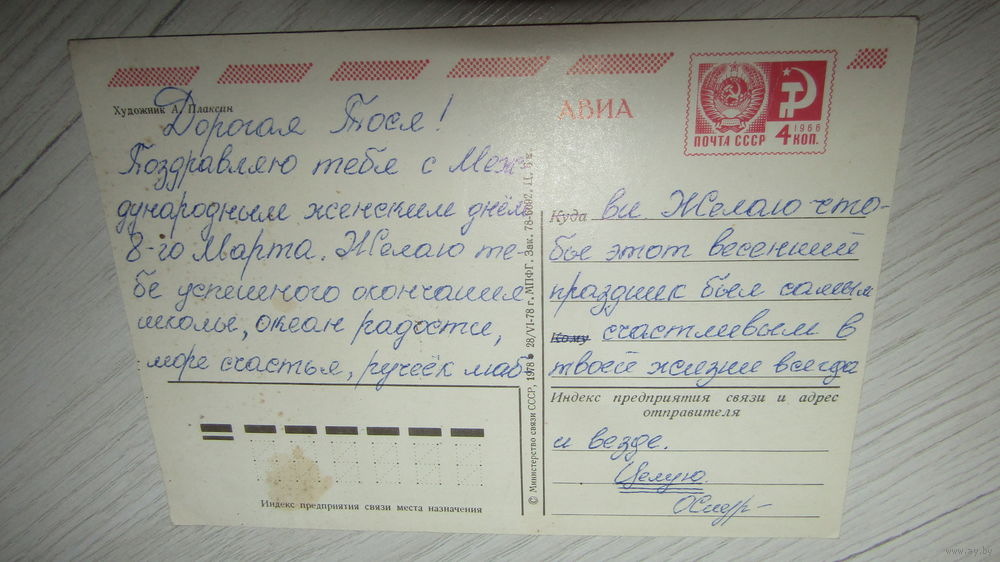 Художник А. Плаксин
Дорогая Тося!
Поздравляю тебя с Меж-
дународным женским днём
8-го Марта. Желаю те-
бе успешного окончания
школы, океан радости,
море счастья, ручеёк люб-
АВИА
ПОЧТА СССР
4 КОП.
1966
Куда
ви. Желаю что-
бы этот весенний
праздник был самым
Кому
счастливым в
твоей жизни всегда
Индекс предприятия связи и адрес
отправителя
и везде.
Целую.
Индекс предприятия связи места назначения
© Министерство связи СССР, 1978 28/VI-78 г. МПФГ. Зак. 78-6092. Ц.
www.ay.by